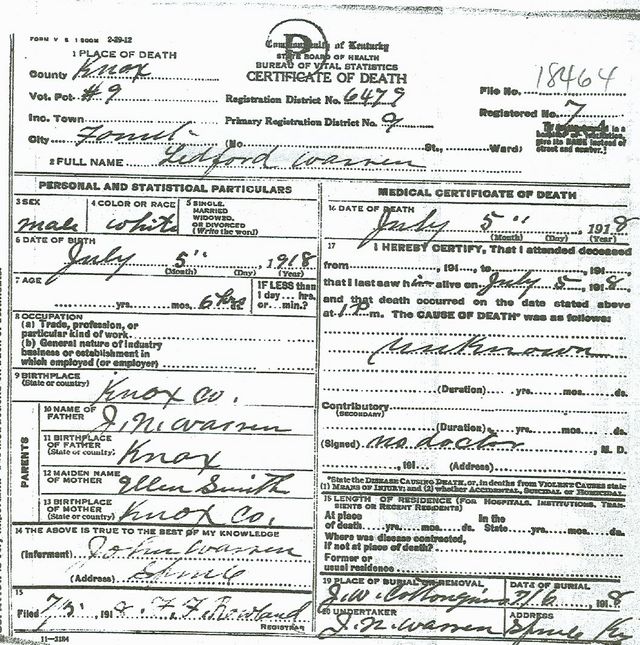 FORM V S 1 500M 2-29-12
Commonwealth of Kentucky
STATE BOARD OF HEALTH
BUREAU OF VITAL STATISTICS
CERTIFICATE OF DEATH
1 PLACE OF DEATH
County Knox
Vot. Pct. #9
Inc. Town
City
Registration District No. 6479
Primary Registration District No. 9
(No. St., Ward)
File No. 18464
Registered No. 7
2 FULL NAME Ledford Warren
PERSONAL AND STATISTICAL PARTICULARS
3 SEX male
4 COLOR OR RACE white
5 SINGLE, MARRIED WIDOWED, OR DIVORCED (Write the word)
6 DATE OF BIRTH
July 5", 1918
(Month) (Day) (Year)
7 AGE
yrs. mos. 6 hrs ds.
IF LESS than 1 day... hrs. or... min.?
8 OCCUPATION
(a) Trade, profession, or
particular kind of work
(b) General nature of industry
business or establishment in
which employed (or employer)
9 BIRTHPLACE
(State or country) Knox Co.
PARENTS
10 NAME OF FATHER J. N. Warren
11 BIRTHPLACE OF FATHER
(State or country) Knox
12 MAIDEN NAME OF MOTHER Ellen Smith
13 BIRTHPLACE OF MOTHER
(State or country) Knox Co.
14 THE ABOVE IS TRUE TO THE BEST OF MY KNOWLEDGE
(Informent) John Warren
(Address)
15
Filed 7/5, 1918 F. F. Rowland
REGISTRAR
11-3184
MEDICAL CERTIFICATE OF DEATH
16 DATE OF DEATH
July 5", 1918
(Month) (Day) (Year)
17 I HEREBY CERTIFY, That I attended deceased
from, 191, to, 191,
that I last saw him alive on July 5, 1918,
and that death occurred on the date stated above
at 1 P.m. The CAUSE OF DEATH* was as follows:
Unknown
(Duration) yrs. mos. ds.
Contributory
(SECONDARY)
(Duration) yrs. mos. ds.
(Signed) no doctor, M. D.
, 191 (Address)
*State the DISEASE CAUSING DEATH, or, in deaths from VIOLENT CAUSES state
(1) MEANS OF INJURY; and (2) whether ACCIDENTAL, SUICIDAL or HOMICIDAL.
18 LENGTH OF RESIDENCE (FOR HOSPITALS, INSTITUTIONS, TRANSIENTS OR RECENT RESIDENTS)
At place of death yrs. mos. ds. In the State yrs. mos. ds.
Where was disease contracted,
if not at place of death?
Former or
usual residence
19 PLACE OF BURIAL OR REMOVAL
J. W. Cottongim
DATE OF BURIAL
7/6, 1918
20 UNDERTAKER
J. N. Warren
ADDRESS
Ky